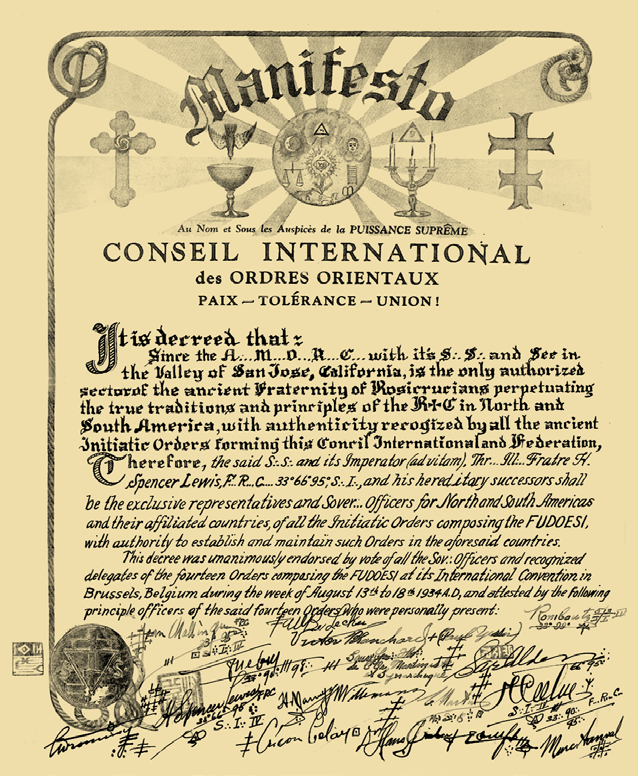 Manifesto
Au Nom et Sous les Auspices de la PUISSANCE SUPRÊME
CONSEIL INTERNATIONAL
des ORDRES ORIENTAUX
PAIX — TOLÉRANCE — UNION!
It is decreed that:
Since the A...M...O...R...C... with its S∴S∴ and See in
the Valley of San Jose, California, is the only authorized
sector of the ancient Fraternity of Rosicrucians perpetuating
the true traditions and principles of the R+C in North and
South America, with authenticity recogized by all the ancient
Initiatic Orders forming this Concil International and Federation,
Therefore, the said S∴S∴ and its Imperator (ad vitam), Thr... Ill... Fratre H.
Spencer Lewis, F.R.C.... 33°66°95°; S∴I., and his hereditary successors shall
be the exclusive representatives and Sover... Officers for North and South Americas
and their affiliated countries, of all the Initiatic Orders composing the FUDOESI,
with authority to establish and maintain such Orders in the aforesaid countries.
This decree was unanimously endorsed by vote of all the Sov∴ Officers and recognized
delegates of the fourteen Orders composing the FUDOESI at its International Convention in
Brussels, Belgium during the week of August 13th to 18th 1934 A.D., and attested by the following
principle officers of the said fourteen Orders who were personally present: